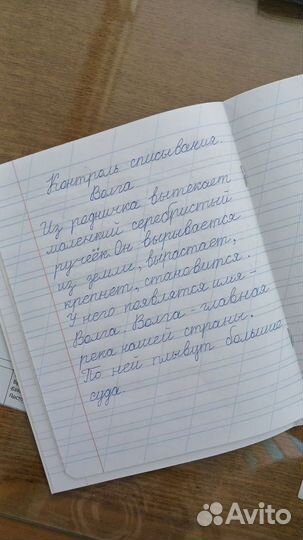 Контроль списывания.
Волга
Из родника вытекает
маленький серебристый
ручеёк. Он вырывается
из земли, вырастает,
крепнет, становится.
У него появлятся имя -
Волга. Волга - главная
река нашей страны.
По ней плывут большие
суда.
Avito